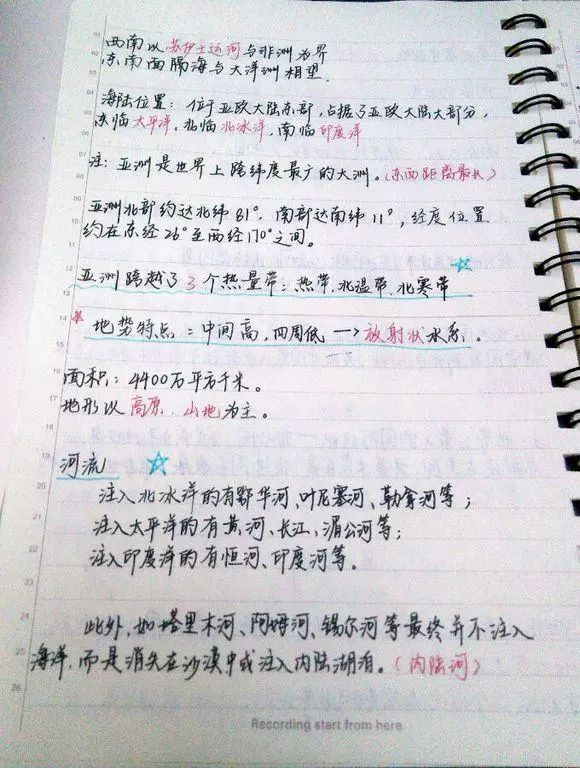 西南以苏伊士运河与非洲为界
东南面隔海与大洋洲相望.
海陆位置：位于亚欧大陆东部,占据了亚欧大陆大部分,
东临太平洋.北临北冰洋,南临印度洋
注：亚洲是世界上跨纬度最广的大洲。(东西距离最长)
亚洲北部约达北纬81°.南部达南纬11°,经度位置
约在东经26°至西经170°之间。
亚洲跨越了3个热量带：热带.北温带.北寒带
*地势特点：中间高,四周低→放射状水系。
面积：4400万平方千米。
地形以高原.山地为主.
河流
注入北冰洋的有鄂毕河、叶尼塞河、勒拿河等；
注入太平洋的有黄河、长江、湄公河等；
注入印度洋的有恒河、印度河等。
此外,如塔里木河、阿姆河、锡尔河等最终并不注入
海洋,而是消失在沙漠中或注入内陆湖泊。(内陆河)
Recording start from here